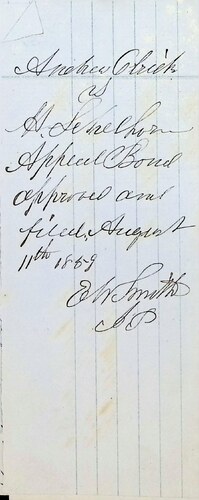 Andrew Olrich
vs
H. Schelhorn
Appeal Bond
approved and
filed, August
11th 1859
E W Smith
JP